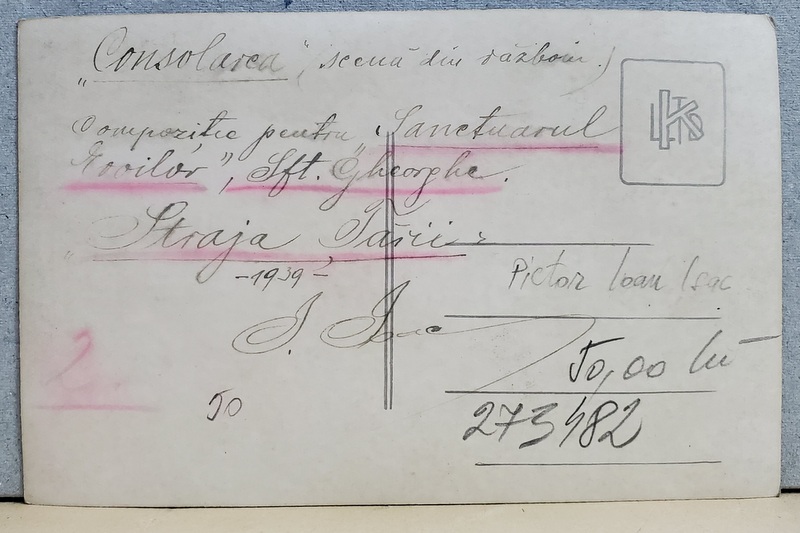 „Consolarea”, scenă din război.)
Compoziție pentru „Sanctuarul
Eroilor”, Sft. Gheorghe.
„Straja Țării”
-1939-
I. Isac
Pictor Ioan Isac
50,00 lei
273482
50
2